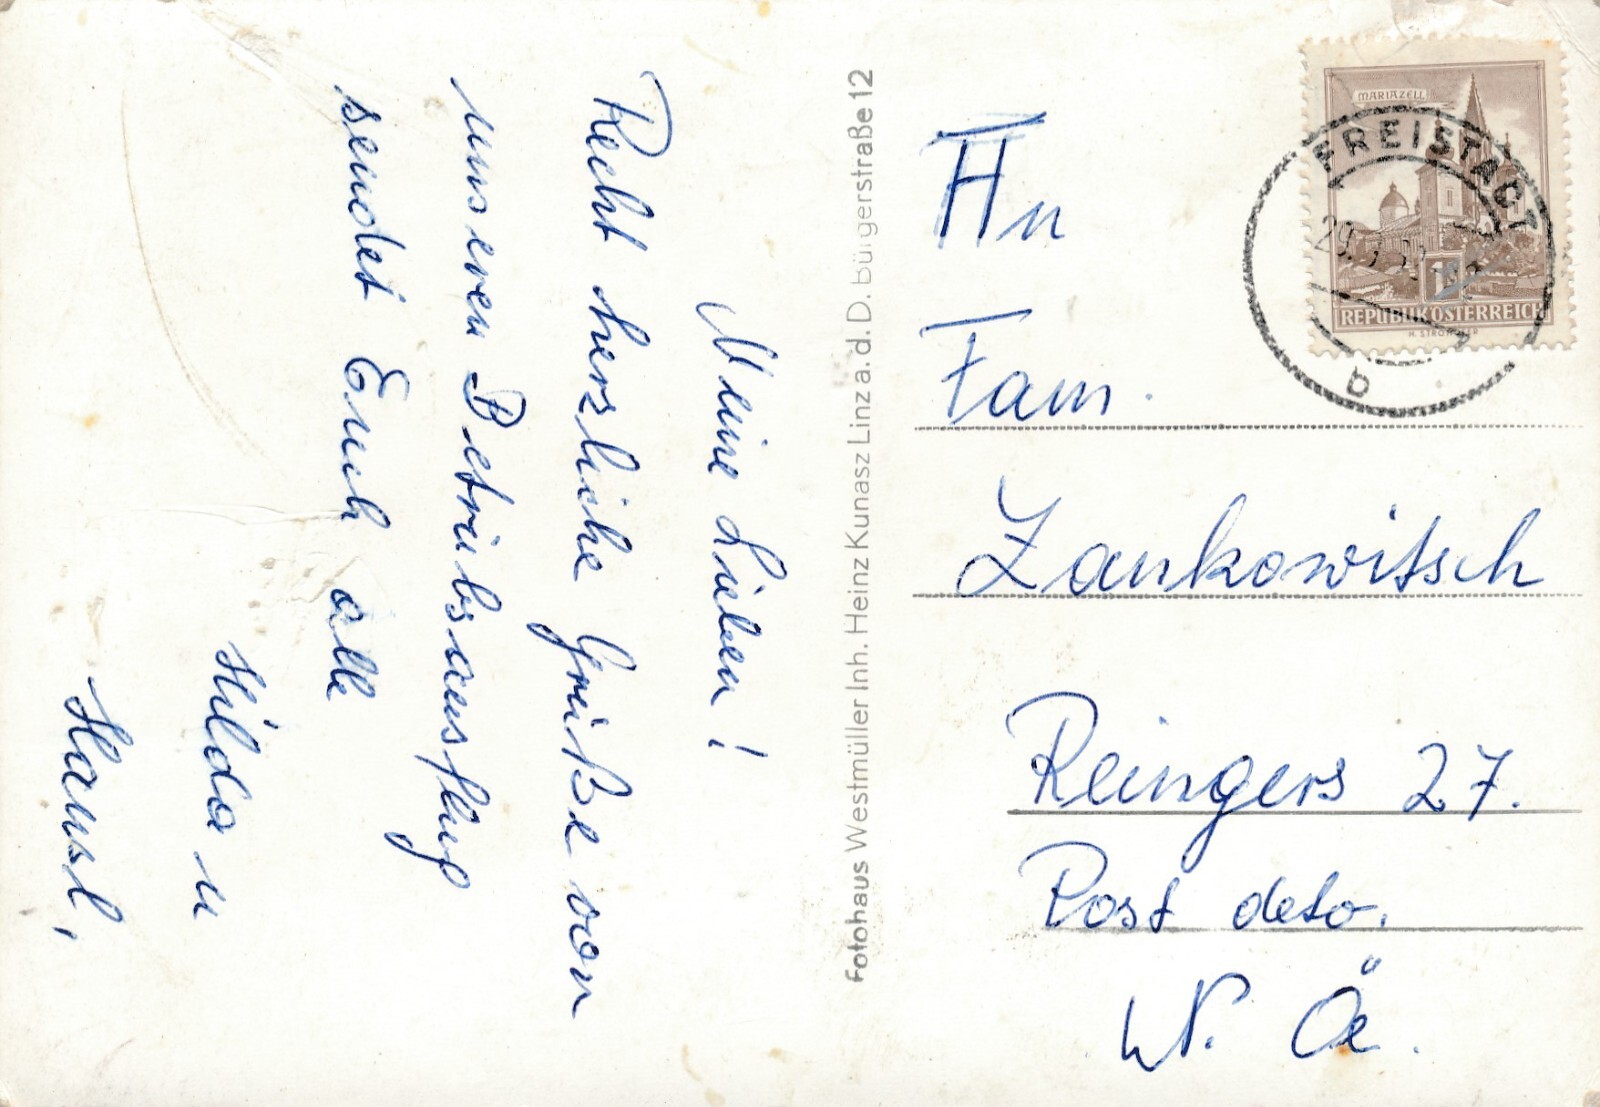 Meine Lieben!
Recht herzliche Grüße von
unseren Betriebsausflug
sendet Euch alle
Hilda u
Hansl,
Fotohaus Westmüller Inh. Heinz Kunasz Linz a. d. D. Bürgerstraße 12
MARIAZELL
REPUBLIK ÖSTERREICH
FREISTADT
b
Hn
Fam.
Zankowitsch
Reingers 27.
Post deto.
N. Ö.